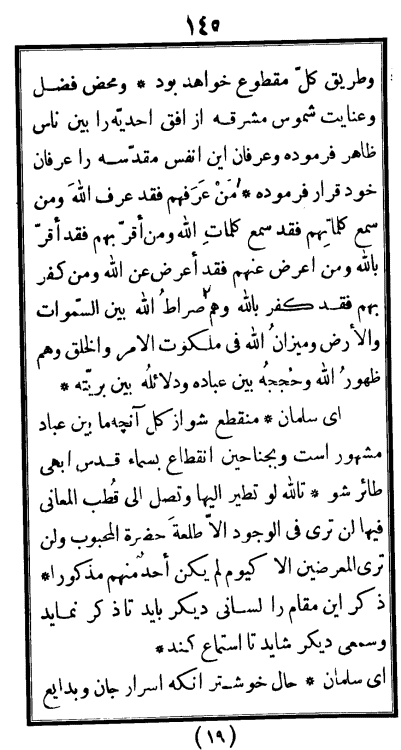 ١٤٥
وطریق کلّ مقطوع خواهد بود * ومحض فضل
وعنایت شموس مشرقه از افق احدیّه را بین ناس
ظاهر فرموده وعرفان این انفس مقدّسه را عرفان
خود قرار فرموده * ١مَنْ عَرَفهم فقد عرف اللهَ ومن
سمع کلماتِهم فقد سمع کلماتِ الله ومن أقرّ بهم فقد أقرّ
بالله ومن اعرض عنهم فقد أعرض عن الله ومن کفر
بهم فقد کفر بالله وهم٢ صراطُ الله بین السّموات
والأرض ومیزانُ الله فی ملکوت الامر والخلق وهم
ظهورُ الله وحُججهُ بین عباده ودلائلُه بین بریّته *
ای سلمان * منقطع شو از کل آنچه ما بین عباد
مشهور است وبجناحین انقطاع بسماء قدس ابهی
طائر شو * تالله لو تطیر الیها وتصل الی قُطب المعانی
فیها لن تری فی الوجود الاّ طلعةَ حضرة المحبوب ولن
تری المعرضین الا کیوم لم یکن أحدٌ منهم مذکورا *
ذکر این مقام را لسانی دیکر باید تا ذکر نماید
وسمعی دیکر شاید تا استماع کند *
ای سلمان * حال خوشتر انکه اسرار جان وبدایع
(١٩)